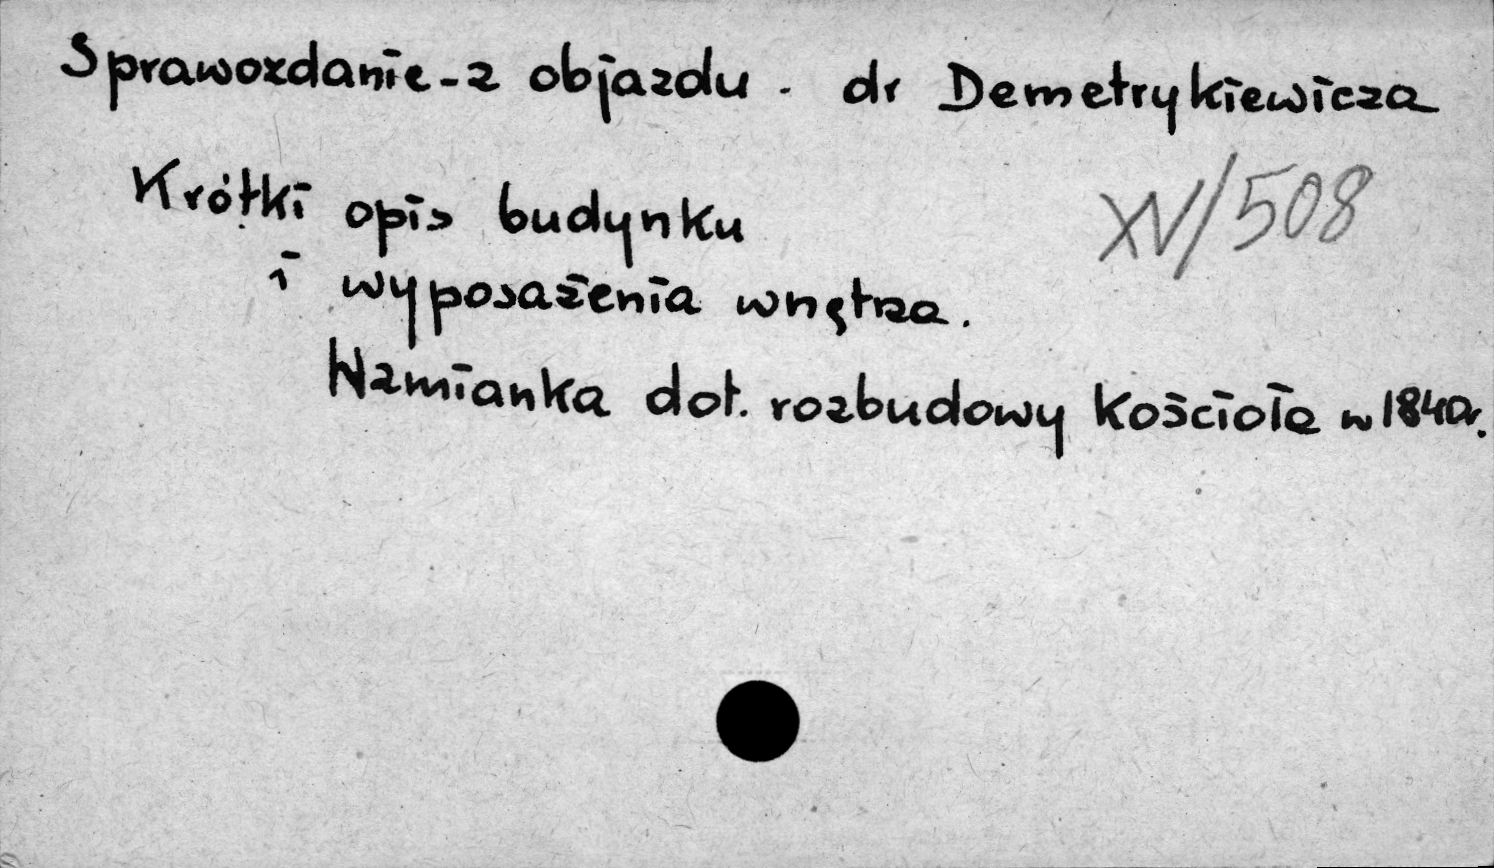 Sprawozdanie - z objazdu - dr Demetrykiewicza
Krótki opis budynku
XV/508
i wyposażenia wnętrza.
Wzmianka dot. rozbudowy kościoła w 1840r.